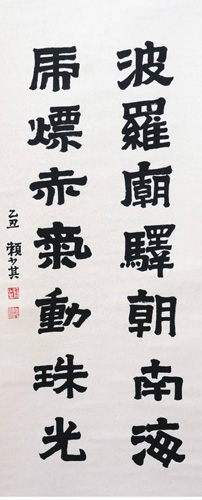 波羅廟驛朝南海
乕熛赤氣動珠光
乙丑 賴少其